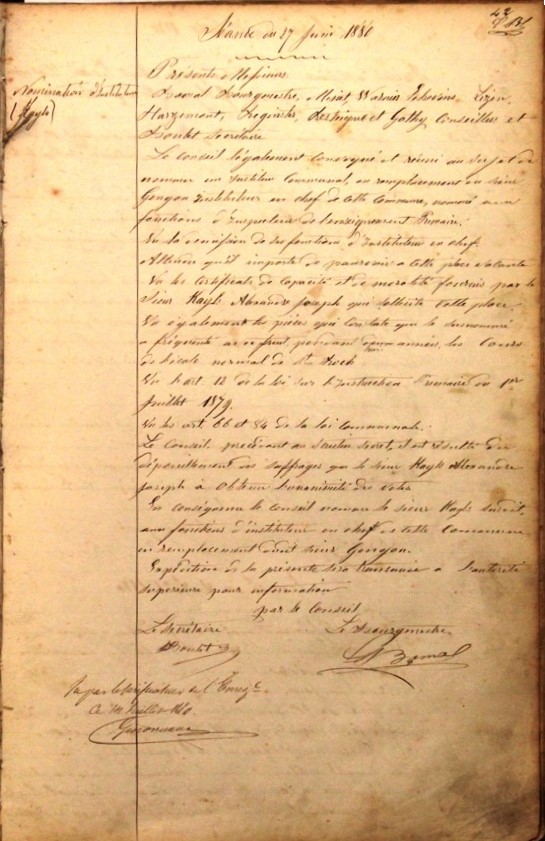 42
Séance du 27 Juin 1880
Nomination d'Instituteur
(Kayls)
Présents Messieurs
Bourgmestre, Echevins, Lizen,
Harzemont, et Gathy Conseillers et
Boulet Secrétaire
Le conseil légalement convoqué et réuni au sujet de
nommer un Institur Communal, en remplacement du sieur
Gengou Instituteur en chef de cette Commune, nommé aux
fonctions d'Inspecteur de l'enseignement Primaire.
Vu la démission de ses fonctions d'Instituteur en chef
Attendu qu'il importe de pourvoir à cette place vacante
Vu les certificats de capacité et de moralité fournis par le
Sieur Kayls Alexandre Joseph qui sollicite cette place.
Vu également les pièces qui constate que le surnommé
a fréquenté avec fruit pendant années, les Cours
de l'école normal de St Roch
Vu l'art. 12 de la loi sur l'Instruction Primaire du 1er
Juillet 1879.
Vu les art. 66 et 84 de la loi Communale.
Le Conseil procédant au scrutin secret, il est résulté du
dépouillement des suffrages que le sieur Kayls Alexandre
Joseph à obtenu l'unanimité des votes
En conséquence le conseil nomme le sieur Kayls susdit,
aux fonctions d'instituteur en chef de cette Commune
en remplacement dudit sieur Gengou.
Expédition de la présente sera transmise à l'autorité
supérieure pour information
par le Conseil
Le Secrétaire
Le Bourgmestre,
Boulet
Vu par le vérificateur de l'Enregt.
Ce Juillet 1880.